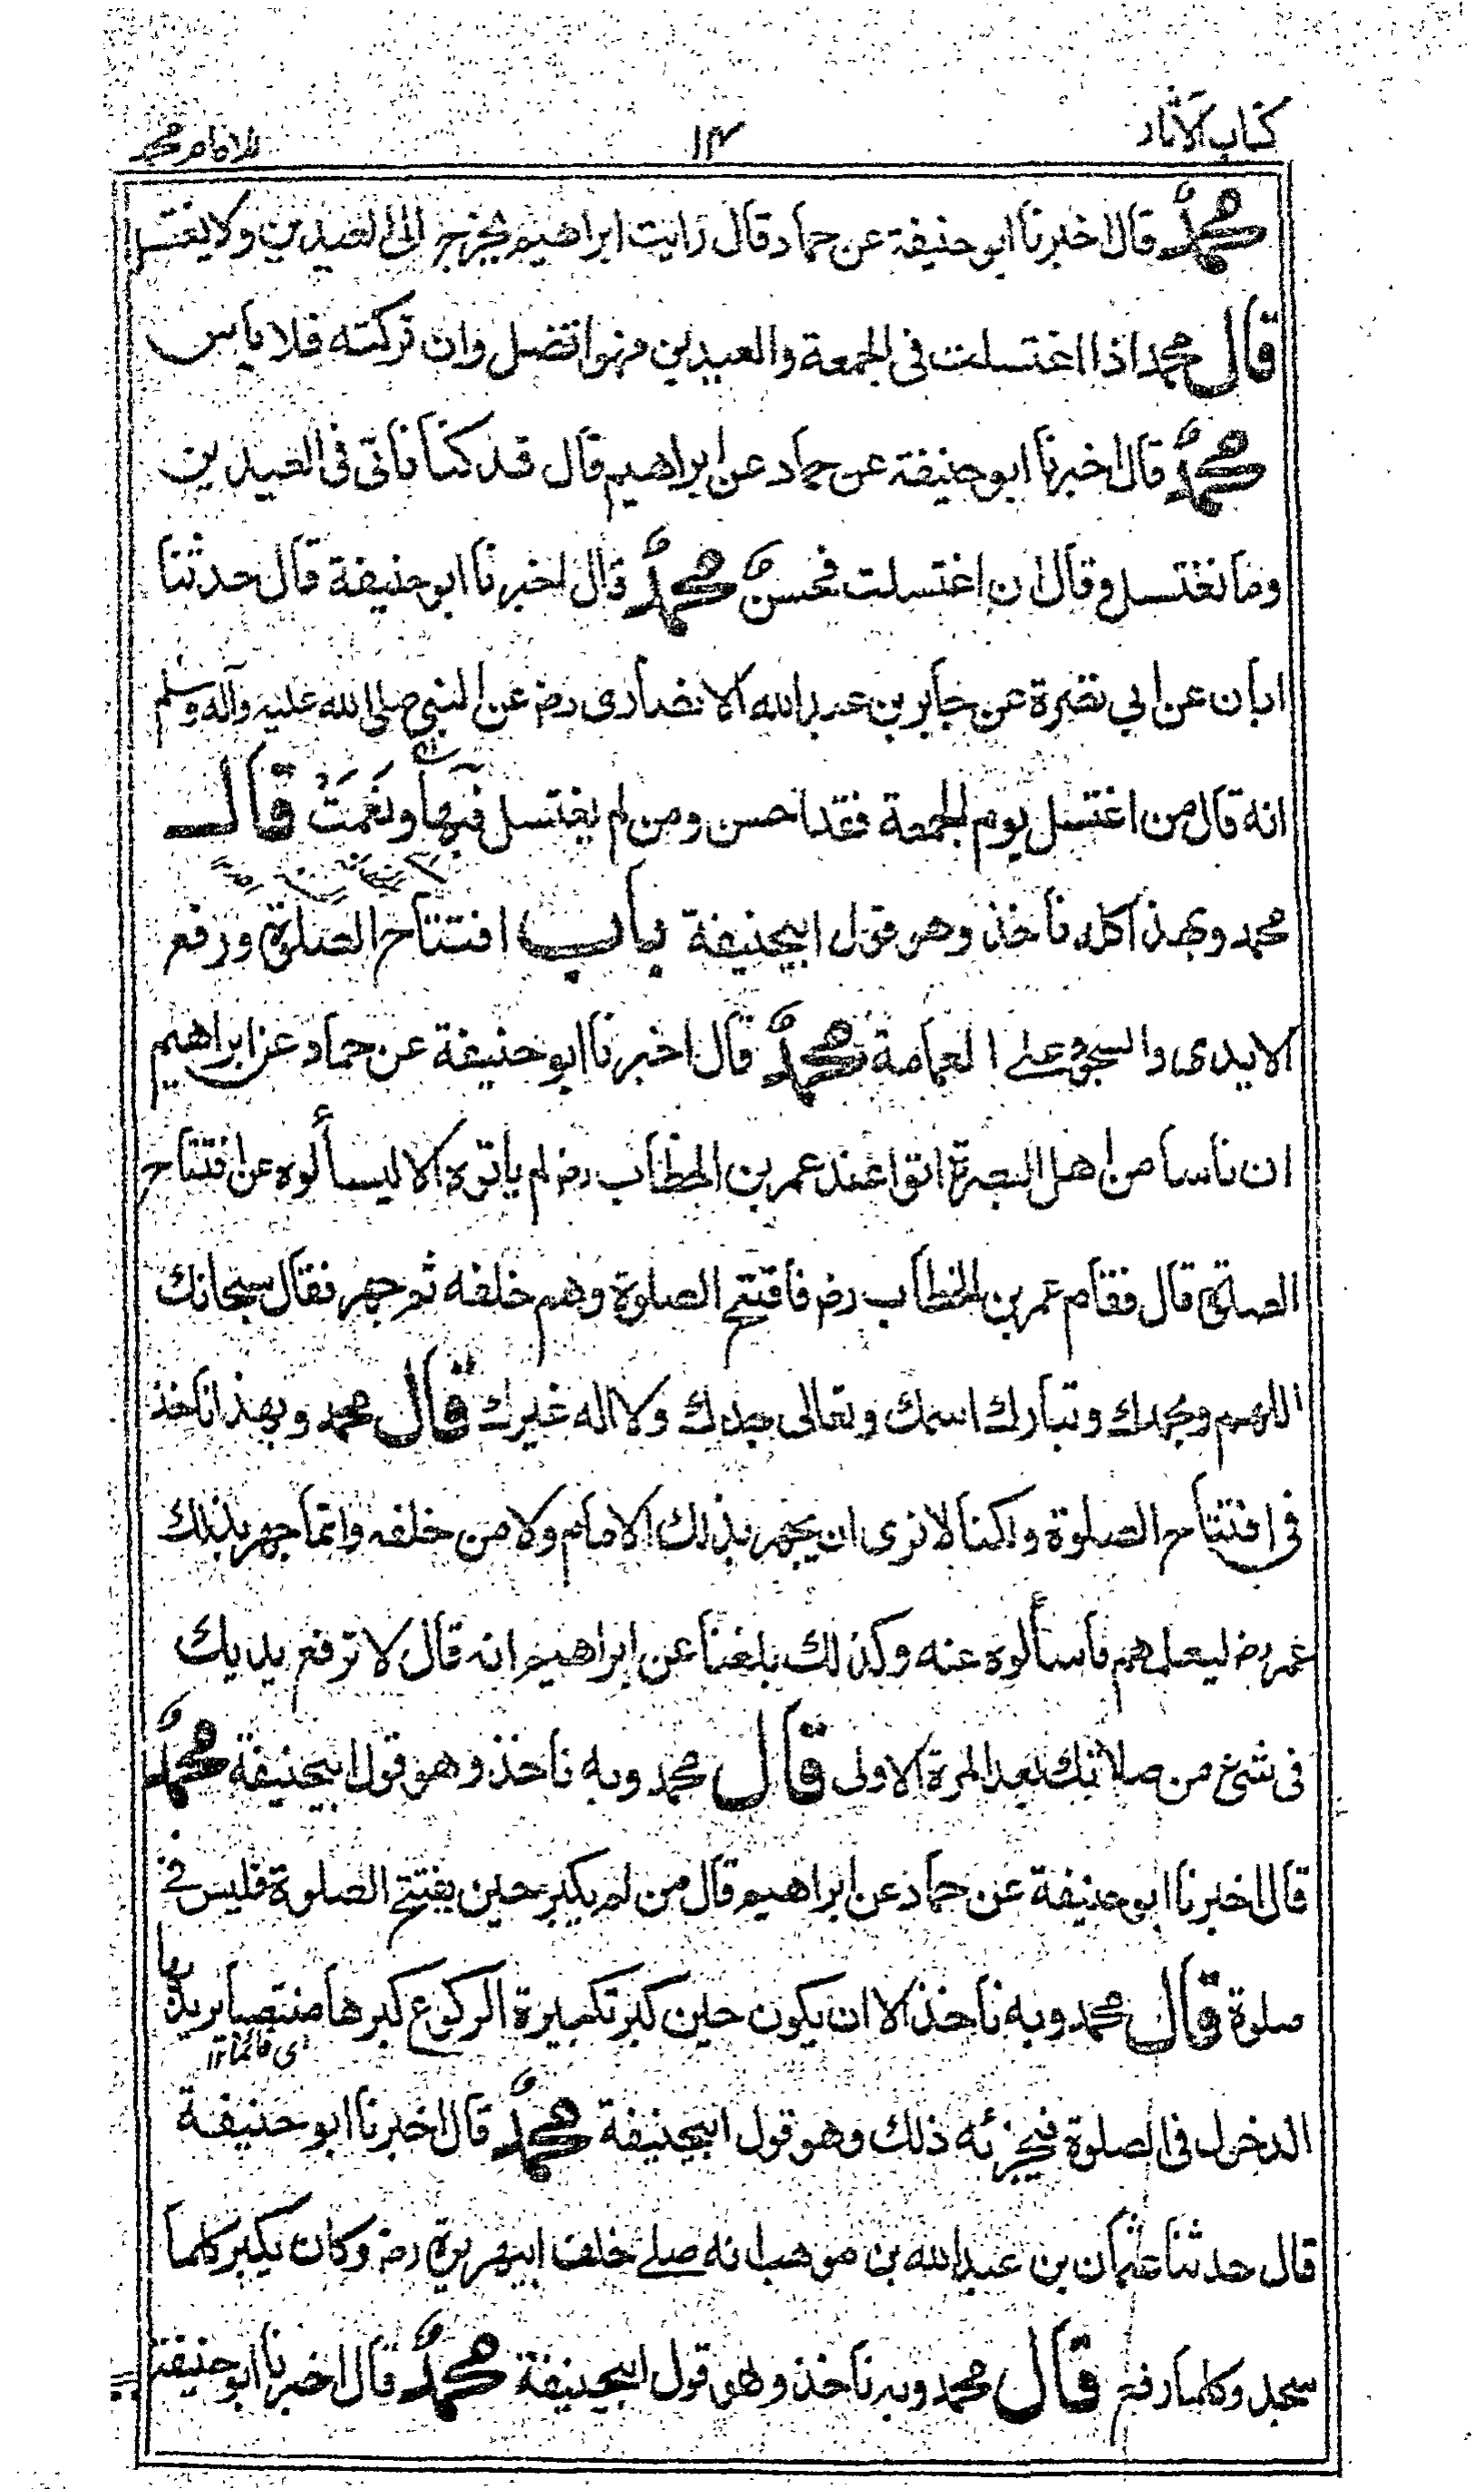 كتاب الآثار ١٤ للامام محمد
محمدٌ قال اخبرنا ابو حنيفة عن حماد قال رايت ابراهيم يخرج الى العيدين ولا يغتسل
قال محمد اذا اغتسلت فى الجمعة والعيدين فهو افضل وان تركته فلا باس
محمدٌ قال اخبرنا ابو حنيفة عن حماد عن ابراهيم قال قد كنا ناتى فى العيدين
وما نغتسل وقال ان اغتسلت فحسنٌ محمدٌ قال اخبرنا ابو حنيفة قال حدثنا
ابان عن ابي نضرة عن جابر بن عبد الله الانصارى رضـ عن النبي صلى الله عليه وآله وسلم
انه قال من اغتسل يوم الجمعة فقد احسن ومن لم يغتسل فبها ونعمت قال
محمد وبهذا كله ناخذ وهو قول ابيحنيفة باب افتتاح الصلوة ورفع
الايدى والسجود على العمامة محمدٌ قال اخبرنا ابو حنيفة عن حماد عن ابراهيم
ان ناسا من اهل البصرة اتوا عند عمر بن الخطاب رضـ لم ياتوه الا ليسألوه عن افتتاح
الصلوة قال فقام عمر بن الخطاب رضـ فافتتح الصلوة وهم خلفه ثم جهر فقال سبحانك
اللهم وبحمدك وتبارك اسمك وتعالى جدك ولا اله غيرك قال محمد وبهذا ناخذ
فى افتتاح الصلوة ولكنا لا نرى ان يجهر بذلك الامام ولا من خلفه وانما جهر بذلك
عمر رضـ ليعلمهم ما سألوه عنه وكذلك بلغنا عن ابراهيم انه قال لا ترفع يديك
فى شئ من صلاتك بعد المرة الاولى قال محمد وبه ناخذ وهو قول ابيحنيفة محمدٌ
قال اخبرنا ابو حنيفة عن حماد عن ابراهيم قال من لم يكبر حين يفتتح الصلوة فليس فى
صلوة قال محمد وبه ناخذ الا ان يكون حين كبر تكبيرة الركوع كبرها منتصبا يريد بها
اى قائما ١٢
الدخول فى الصلوة فيجزئه ذلك وهو قول ابيحنيفة محمدٌ قال اخبرنا ابو حنيفة
قال حدثنا عثمان بن عبد الله بن موهب انه صلى خلف ابيهريرة رضـ وكان يكبر كلما
سجد وكلما رفع قال محمد وبه ناخذ وهو قول ابيحنيفة محمدٌ قال اخبرنا ابو حنيفة